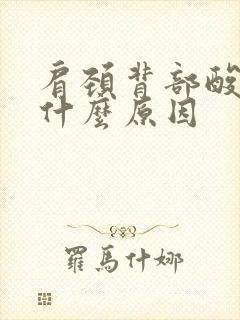 肩頸背部酸
什麼原因
羅馬什娜